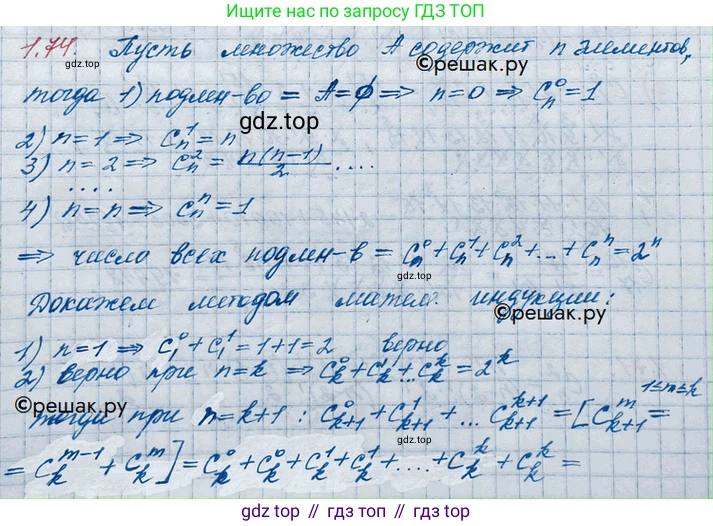 Ищите нас по запросу ГДЗ ТОП
1.74. Пусть множество A содержит n элементов,
©reшак.ру
тогда 1) подмн-во = A = ∅ ⇒ n = 0 ⇒ C_n^0 = 1
gdz.top
2) n = 1 ⇒ C_n^1 = n
3) n = 2 ⇒ C_n^2 = n(n-1)/2 ....
....
4) n = n ⇒ C_n^n = 1
⇒ числа всех подмн-в = C_n^0 + C_n^1 + C_n^2 + ... + C_n^n = 2^n
gdz.top
Докажем методом матем. индукции:
©решак.ру
1) n = 1 ⇒ C_1^0 + C_1^1 = 1 + 1 = 2 верно
2) верно при n = k ⇒ C_k^0 + C_k^1 ... C_k^k = 2^k
©решак.ру
тогда при n = k+1 : C_{k+1}^0 + C_{k+1}^1 + ... C_{k+1}^{k+1} = [C_{k+1}^m = 1≤m≤k
gdz.top
= C_k^{m-1} + C_k^m] = C_k^0 + C_k^0 + C_k^1 + C_k^1 + .... + C_k^k + C_k^k =
gdz.top // gdz.top // gdz.top // gdz.top // gdz.top